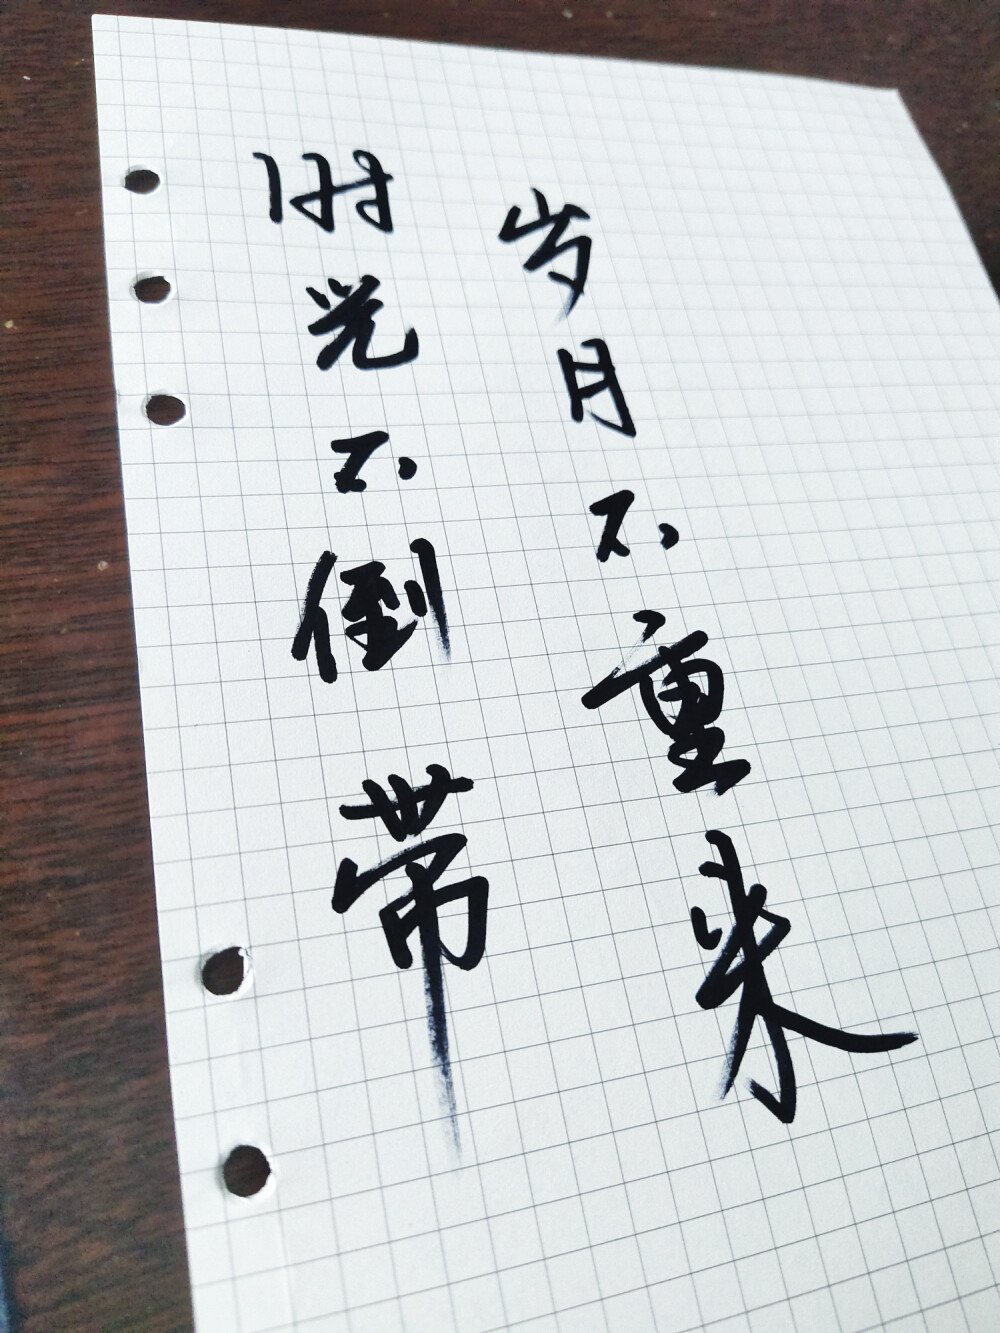 时光不倒带
岁月不重来